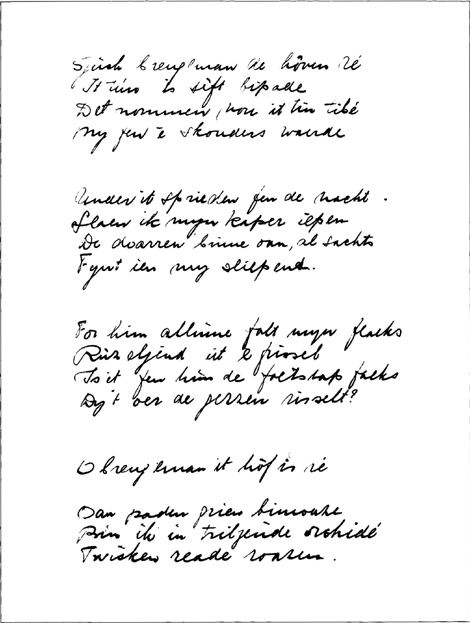 Sjuch brengeman de hôven ré
It túns is sêft bipade
Det nommen, hou it lin tibé
my fen 'e skouders waerde
Under it sprieden fen de nacht.
Slaen ik myn kaper iepen
De doarren binne oan, al sachts
Fynt ien my sliepend.
For him allinne falt myn flaeks
Rûzeljend út 'e frissel
Is it fen him de foetstap faeks
Dy't oer de gerzen risselt?
O brengeman it hôf is ré
Oan paden grien bimouze
Bin ik in triljende orchidé
Twisken reade roazen.